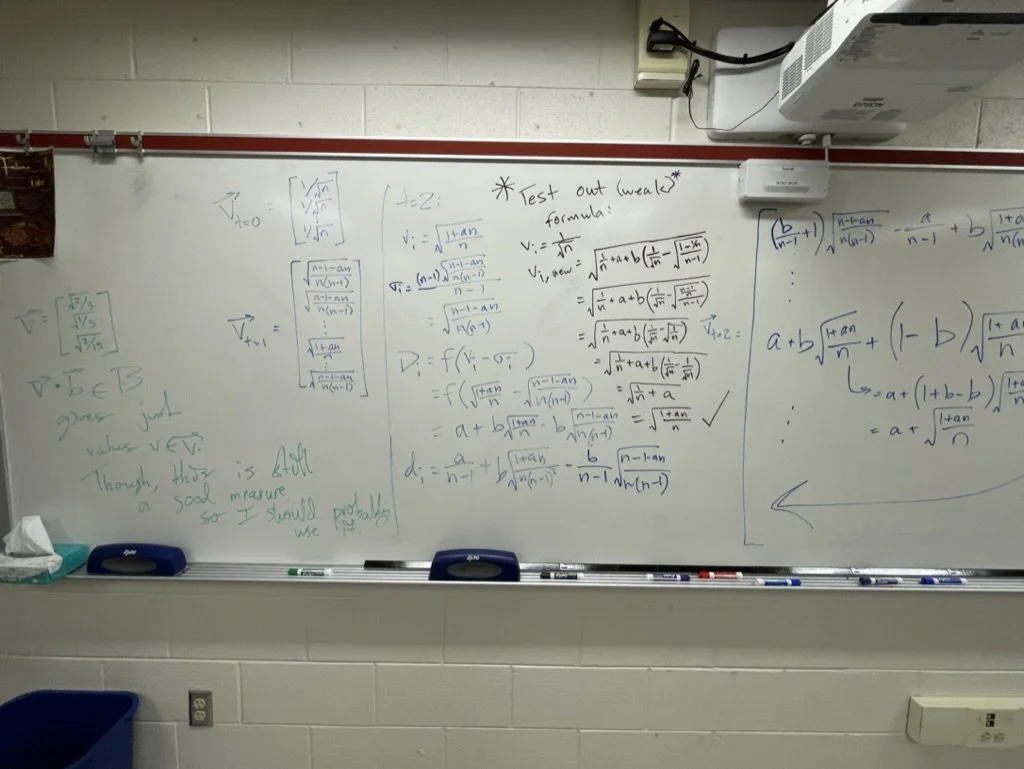 V⃗_{t=0} = [1/√n
1/√n
1/√n]
V⃗_{t=1} = [√((n-1-an)/(n(n-1)))
√((n-1-an)/(n(n-1)))
⋮
√((1+an)/n)
⋮
√((n-1-an)/(n(n-1)))]
V⃗ = [√2/3
√1/3
√2/3]
V⃗ · b⃗ ∈ B
gives just
values v ∈ V⃗.
Though, this is still
a good measure
so I should probably
use it.
t=2:
V_i = √((1+an)/n)
σ_i = (n-1)√((n-1-an)/(n(n-1))) / (n-1)
= √((n-1-an)/(n(n-1)))
D_i = f(V_i - σ_i)
= f(√((1+an)/n) - √((n-1-an)/(n(n-1))))
= a + b√((1+an)/n) - b√((n-1-an)/(n(n-1)))
d_i = a/(n-1) + b√((1+an)/(n(n-1)²)) - b/(n-1) √((n-1-an)/(n(n-1)))
* Test out (weak) *
formula:
V_i = 1/√n
V_{i,new} = √(1/n + a + b(1/√n - √((1-1/n)/(n-1))))
= √(1/n + a + b(1/√n - √(((n-1)/n)/(n-1))))
= √(1/n + a + b(1/√n - √(1/n)))
= √(1/n + a + b(1/√n - 1/√n))
= √(1/n + a)
= √((1+an)/n) ✓
V⃗_{t=2} =
(b/(n-1) + 1)√((n-1-an)/(n(n-1))) - a/(n-1) + b√((1+an)/
⋮
a + b√((1+an)/n) + (1 - b)√((1+a
↳ = a + (1+b-b)√((1+a
= a + √((1+an)/n)
⋮